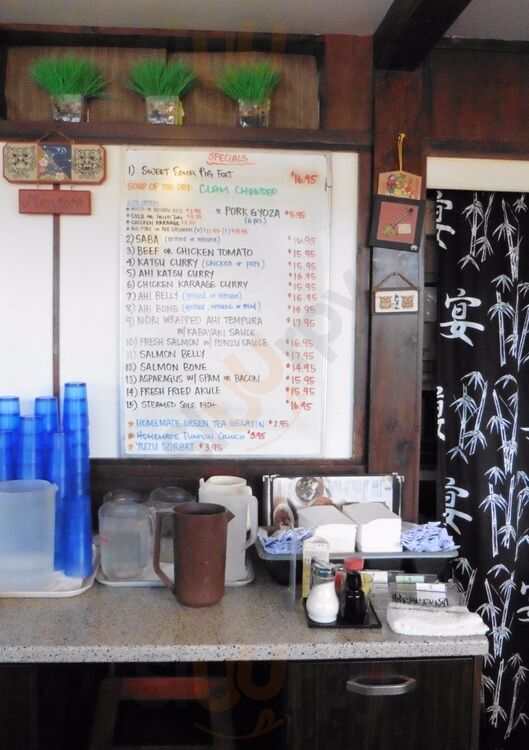 SPECIALS
1) SWEET SOUR PIG FEET $16.95
SOUP OF THE DAY: CLAM CHOWDER
* PORK GYOZA $5.95
(6 pcs)
2) SABA (grilled or nitsuke) $16.95
3) BEEF OR CHICKEN TOMATO $15.95
4) KATSU CURRY (chicken or pork) $15.95
5) AHI KATSU CURRY $16.95
6) CHICKEN KARAAGE CURRY $15.95
7) AHI BELLY (grilled or nitsuke) $16.95
8) AHI BONE (grilled, nitsuke or fried) $14.95
9) NORI WRAPPED AHI TEMPURA $17.95
W/KABAYAKI SAUCE
10) FRESH SALMON W/ PONZU SAUCE $16.95
11) SALMON BELLY $17.95
12) SALMON BONE $14.95
13) ASPARAGUS W/ SPAM OR BACON $15.95
14) FRESH FRIED AKULE $15.95
15) STEAMED SOLE FISH $16.95
* HOMEMADE GREEN TEA GELATIN $2.95
* HOMEMADE PUMPKIN CRUNCH $3.95
* YUZU SORBET $3.95
宴
宴
宴